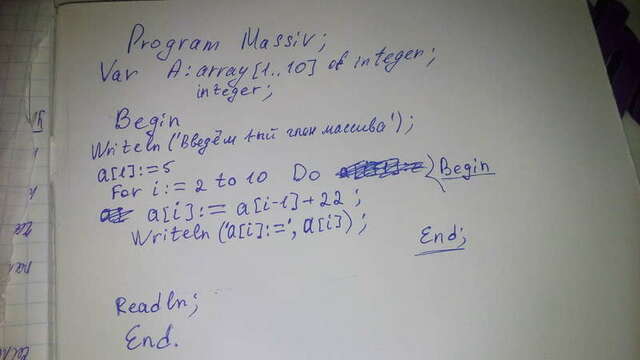 Program Massiv;
Var A: array [1..10] of integer;
integer;
Begin
Writeln ('Введём 1ый член массива');
a[1]:=5
For i:= 2 to 10 Do Begin
a[i]:= a[i-1]+22;
Writeln ('a[i]:=', a[i]);
End;
Readln;
End.